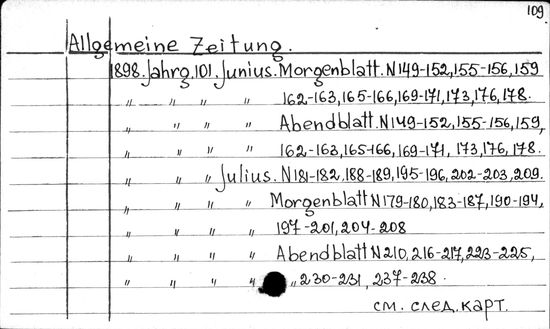 109
Allgemeine Zeitung.
1898. Jahrg. 101. Junius. Morgenblatt. N149-152, 155-156, 159
〃 〃 〃 〃 162-163, 165-166, 169-171, 173, 176, 178.
〃 〃 〃 〃 Abendblatt. N149-152, 155-156, 159,
〃 〃 〃 〃 162-163, 165-166, 169-171, 173, 176, 178.
〃 〃 〃 Julius. N181-182. 188-189, 195-196, 202-203, 209.
〃 〃 〃 〃 Morgenblatt N179-180, 183-187, 190-194,
〃 〃 〃 〃 197-201, 204-208
〃 〃 〃 〃 Abendblatt N210, 216-217, 223-225,
〃 〃 〃 〃 〃 230-231, 237-238.
см. след. карт.